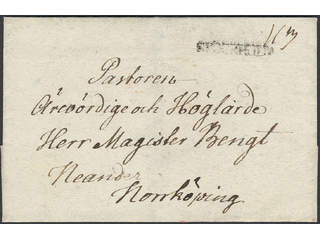 Pastoren
Ärevördige och Höglärde
Herr Magister Bengt
Neander
Norrköping